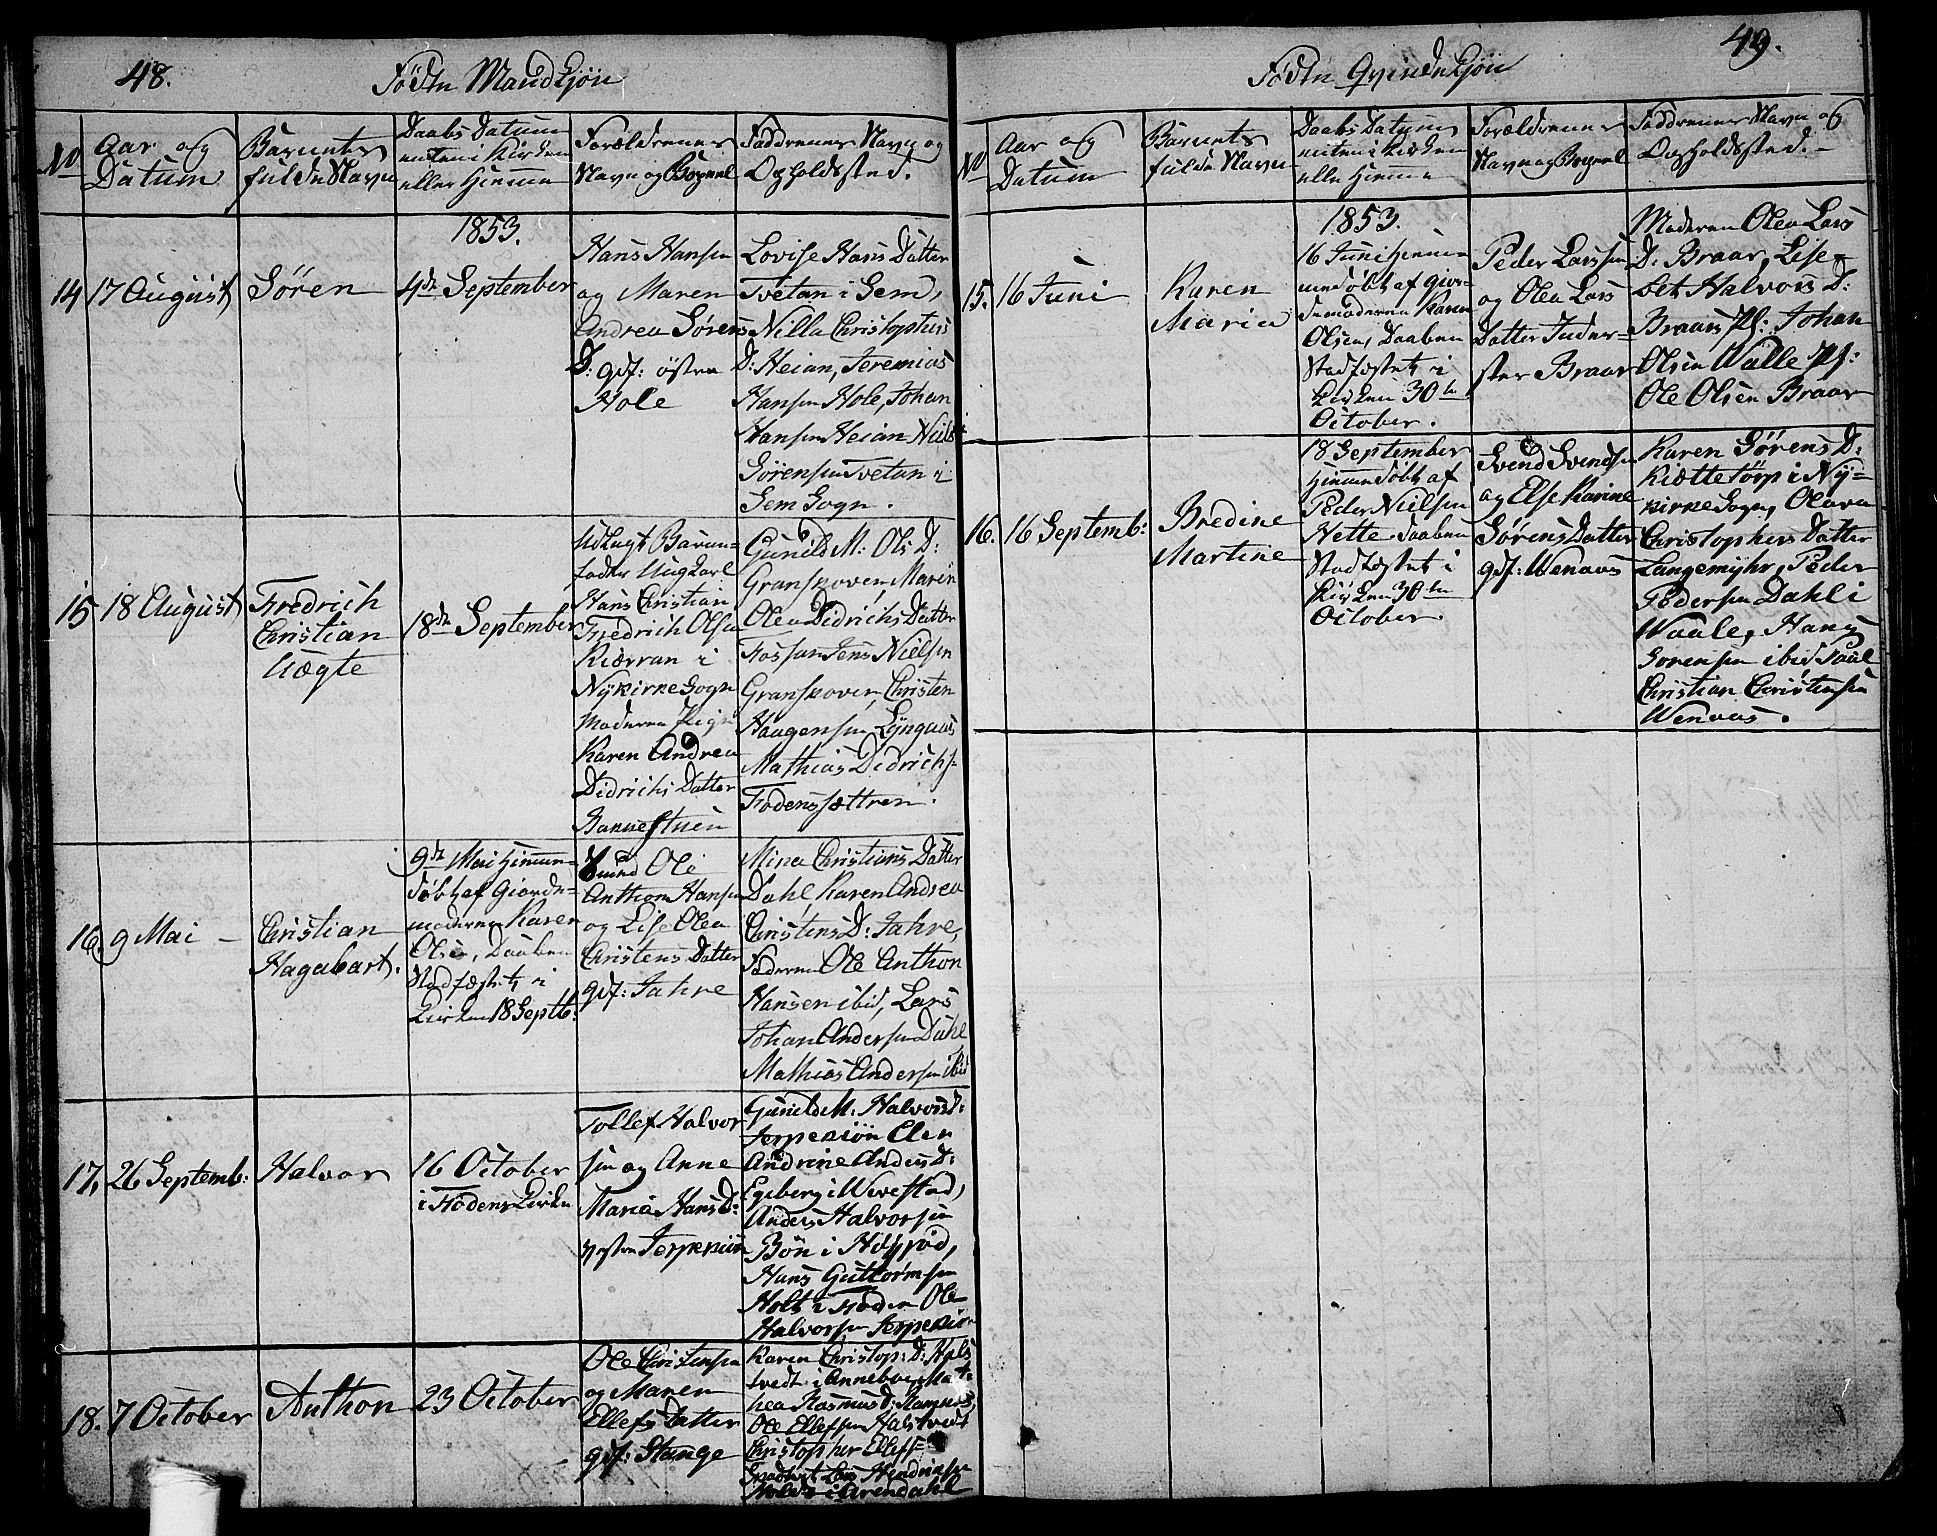 48.
Fødte Mandkjøn
No
Aar og
Datum
Barnets
fulde Navn
Daabs Datum
enten i Kirken
eller Hjemme
Forældrenes
Navn og Bopæl
Faddrenes Navn og
Opholdssted.
1853.
14
17 August
Søren
4de September
Hans Hansen
og Maren
Andrea Sørens
D: gdf: østre
Hole
Lovise Hans Datter
Tvetan i Sem,
Nilla Christophers
D: Heian, Jeremias
Hansen Hole, Johan
Hansen Heian Niels
Sørensen Tvetan i
Sem Sogn.
15
18 August
Fredrich
Christian
Uægte
18de September
Udlagt Barne=
fader Ungkarl
Hans Christian
Fredrich Olsen
Kiærran i
Nykirke Sogn
Moderen Pige
Karen Andrea
Didrichs Datter
Gunild M: Ols D:
Granskoven, Maren
Olea Didrichs Datter
Fossan Jens Nielsen
Granskoven, Christen
Haagensen Lyngaas
Mathias Didrichs-
Fodenssættren.
16.
9 Mai
Christian
Hagabart.
9de Mai Hjemme=
døbt af Giorde=
moderen Karen
Olsen, Daaben
Stadfæstet i
Kirken 18 Septb:
Ole
Anthon Hansen
og Lise Olea
Christens Datter
gdf: Jahre
Mina Christians Datter
Dahl Karen Andrea
Christens D: Jahre,
Faderen Ole Anthon
Hansen ibid, Lars
Johan Andersen Dahl
Mathias Andersen ibid
17,
26 Septemb:
Halvor
16 October
i Fodens Kirke
Tollef Halvor
sen og Anne
Maria Hans D:
Jerpekiøn
Gunild M: Halvors D:
Jerpekiøn Elen
Andrine Anders D:
Egeberg i Wivestad,
Anders Halvorsen
Bøn i
Hans Guttormsen
Holt i Foden Ole
Halvorsen Jerpekiøn
18.
7 October
Anthon
23 October
Ole Christensen
og Maren
Ellefs Datter
gdf: Stange
Karen Christop: D: Hals
tvedt i Annebog, Mat
hea Rasmus D: Ramnes,
Ole Ellefsen Halstvedt
Christopher Ellefs=
Lars Hendriksen
i Arendahl
49.
Fødte Qvindekjøn
No
Aar og
Datum
Barnets
fulde Navn
Daabs Datum
enten i Kirken
eller Hjemme
Forældrenes
Navn og Bopæl
Faddrenes Navn og
Opholdssted.
1853.
15.
16 Juni
Karen
Maria
16 Juni Hjemme
døbt af Gior=
demoderen Karen
Olsen, Daaben
Stadfæstet i
Kirken 30te
October.
Peder Larssen
og Olea Lars
Datter Inder=
ster Braar
Moderen Olea Lars
D: Braar, Lise=
bet Halvors D:
Braar Pf: Johan
Olsen Walle Pf:
Ole Olsen Braar
16.
16 Septemb:
Bredine
Martine
18 September
Hjemmedøbt af
Peder Nielsen
Hette Daaben
Stadfæstet i
Kirken 30te
October.
Svend Svendsen
og Else Karine
Sørens Datter
gdf: Wenaas
Karen Sørens D:
Kiættetorp i Ny=
kirke Sogn, Olava
Christophers Datter
Langemyhr, Peder
Pedersen Dahl i
Waale, Hans
Sorensen ibid Paul
Christian Christensen
Wenaas.